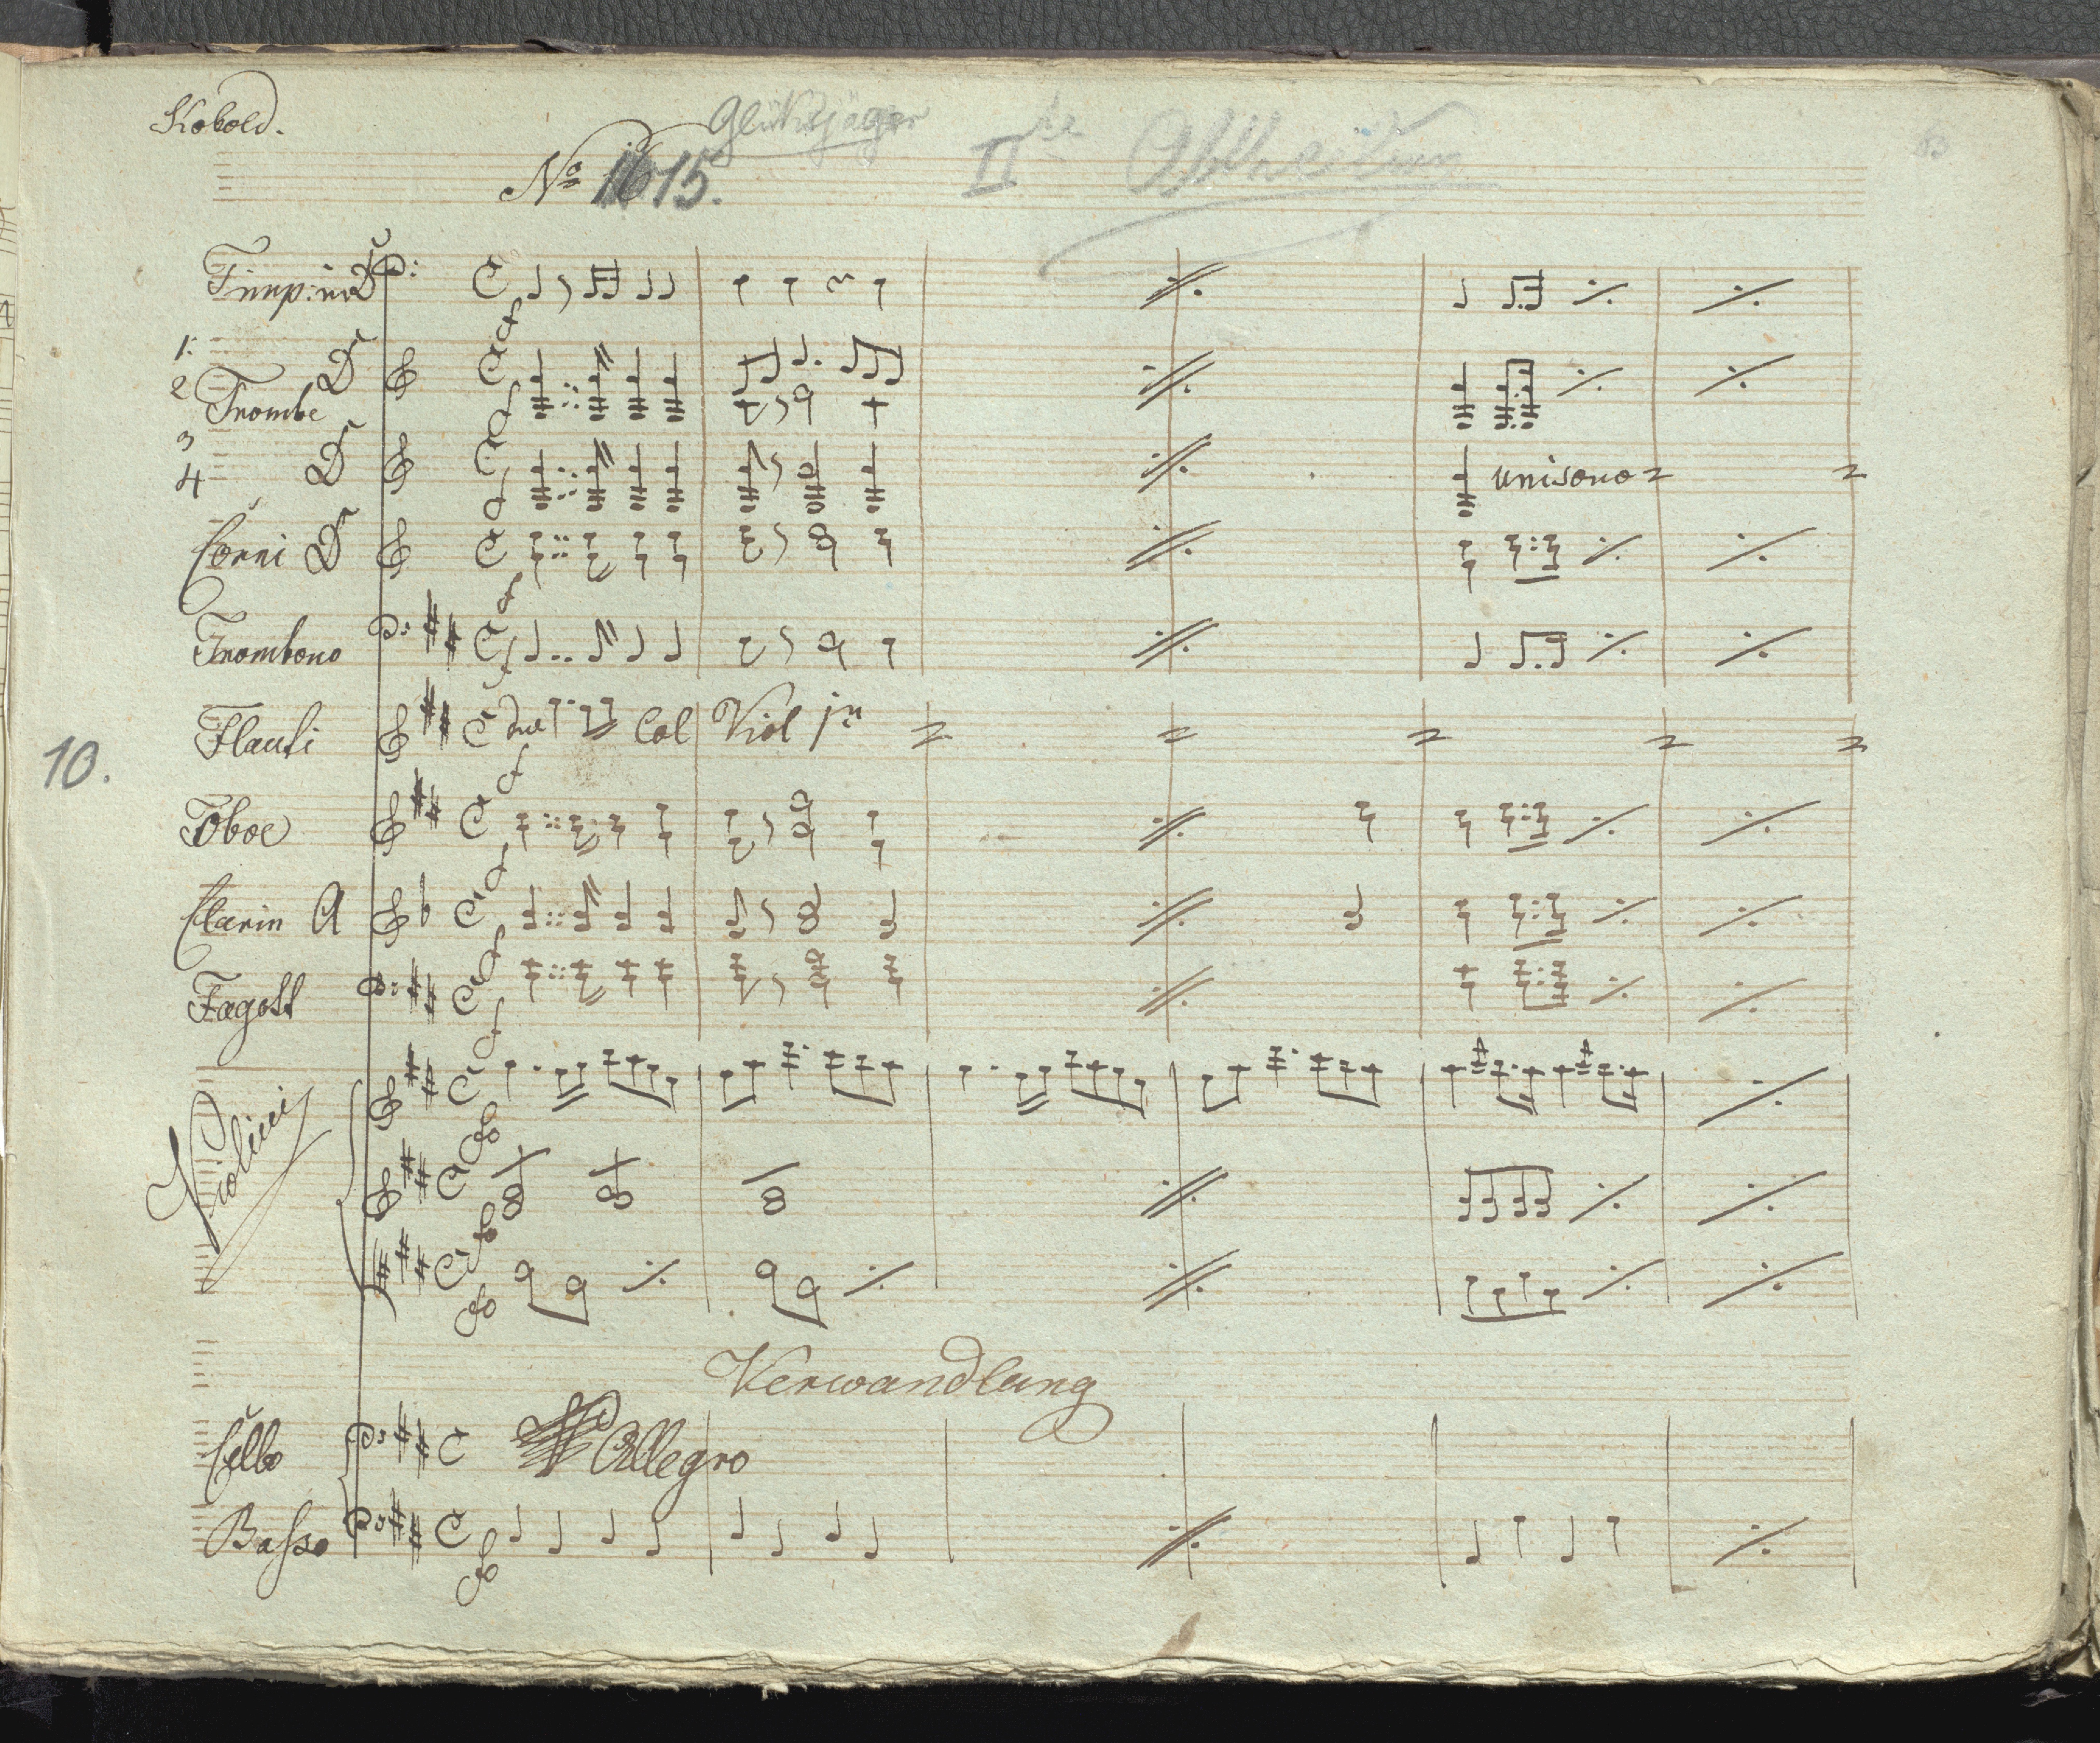 Kobold.
Glüksjäger
IIte Abtheilung
No 15.
Timp: in D
1:
2 Trombe D
3
4 D
Corni D
Trombono
Flauti Col Viol jn
10.
Oboe
Clarin A
Fagott
unisono
Violini
Verwandlung
Cello Allegro
Basso